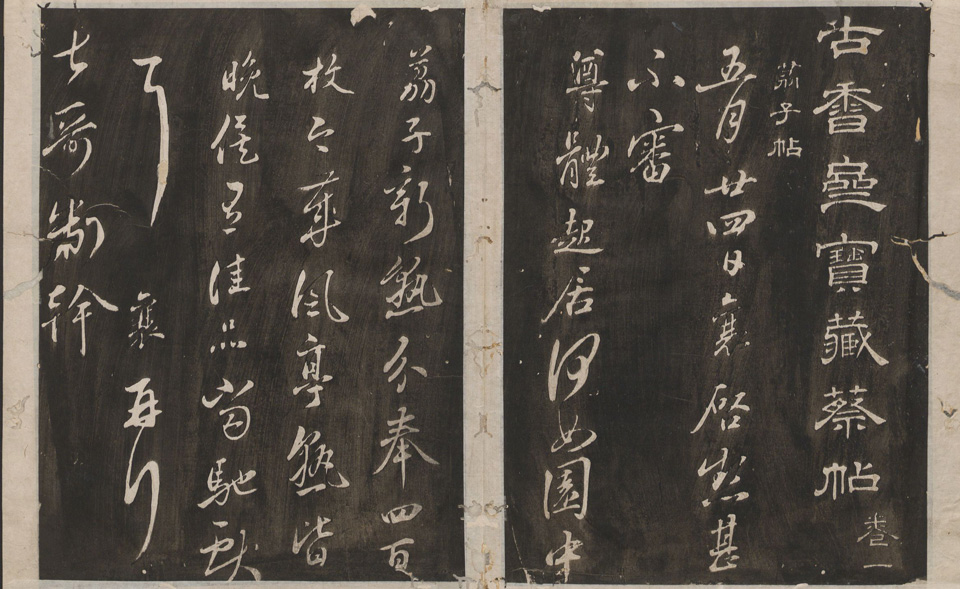 古香齋寶藏蔡帖 卷一
茘子帖
五月廿四日襄啓熱甚
不審
尊體起居何如園中
荔子新熟分奉四百
枚今年風亭熟皆
晚俟有佳品當馳獻
耳 襄再拜
七哥 幹